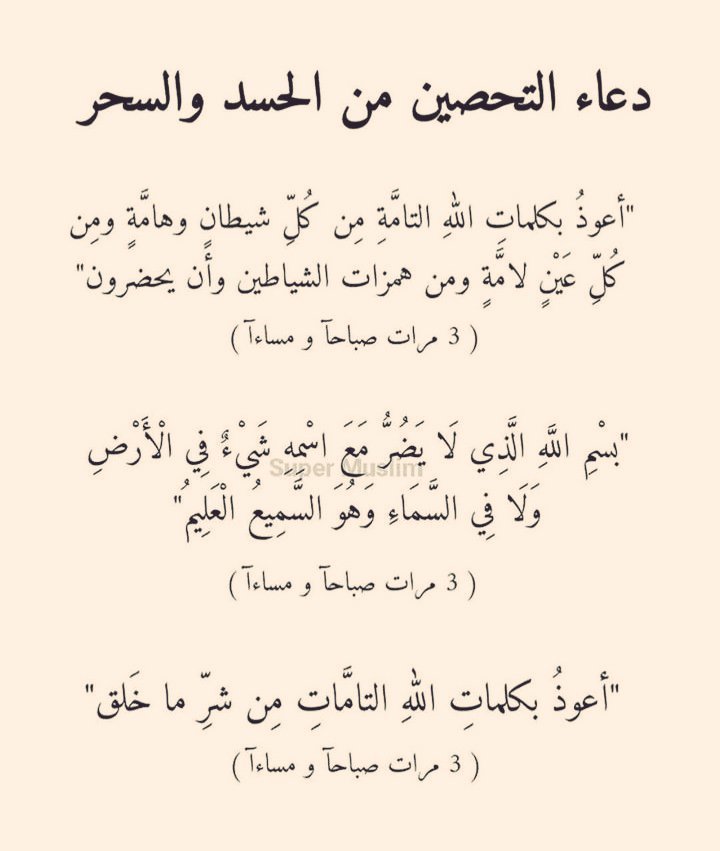 دعاء التحصين من الحسد والسحر
"أعوذُ بكلماتِ اللهِ التامَّةِ مِن كُلِّ شيطانٍ وهامَّةٍ ومِن
كُلِّ عَيْنٍ لامَّةٍ ومن همزات الشياطين وأن يحضرون"
( 3 مرات صباحآ و مساءآ )
"بسْمِ اللَّهِ الَّذِي لَا يَضُرُّ مَعَ اسْمِهِ شَيْءٌ فِي الْأَرْضِ
Super Muslim
وَلَا فِي السَّمَاءِ وَهُوَ السَّمِيعُ الْعَلِيمُ"
( 3 مرات صباحآ و مساءآ )
"أعوذُ بكلماتِ اللهِ التامَّاتِ مِن شرِّ ما خَلق"
( 3 مرات صباحآ و مساءآ )